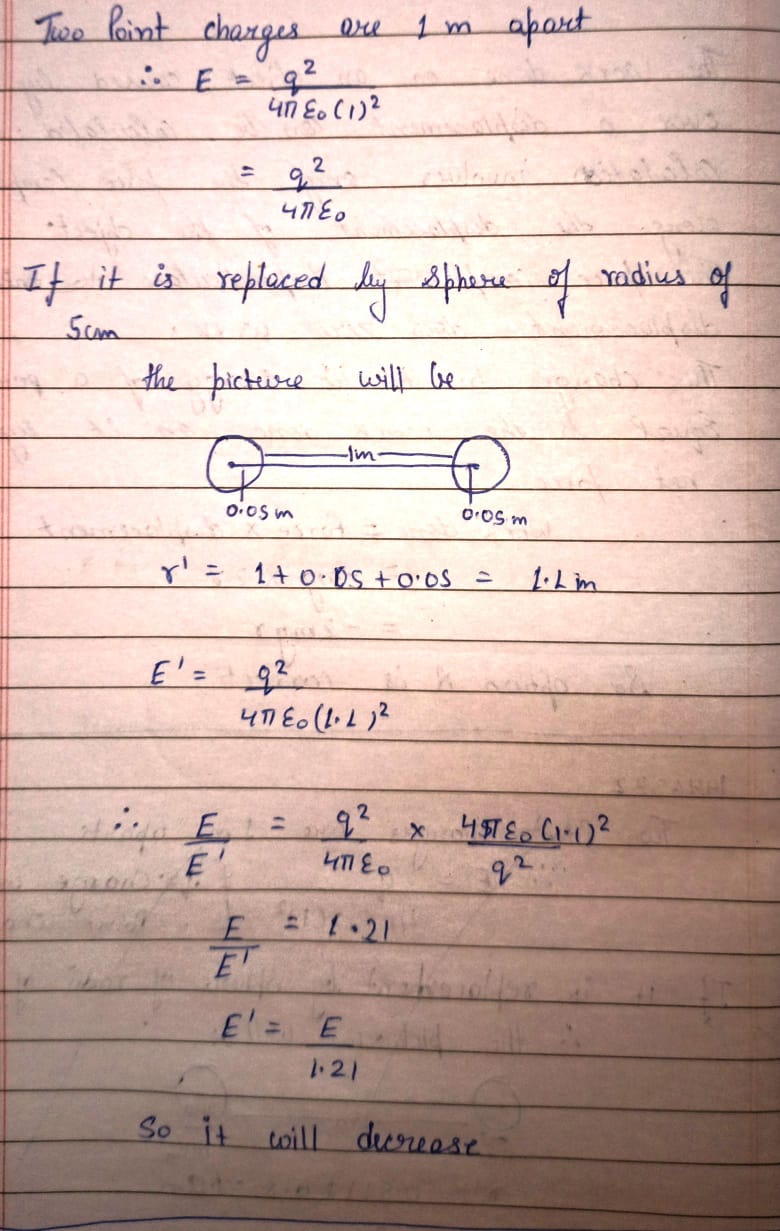 Two Point charges are 1 m apart
∴ E = q²/4πε₀(1)²
= q²/4πε₀
If it is replaced by sphere of radius of
5cm
the picture will be
1m
0.05m 0.05m
r' = 1 + 0.05 + 0.05 = 1.1m
E' = q²/4πε₀(1.1)²
∴ E/E' = q²/4πε₀ × 4πε₀(1.1)²/q²
E/E' = 1.21
E' = E/1.21
So it will decrease